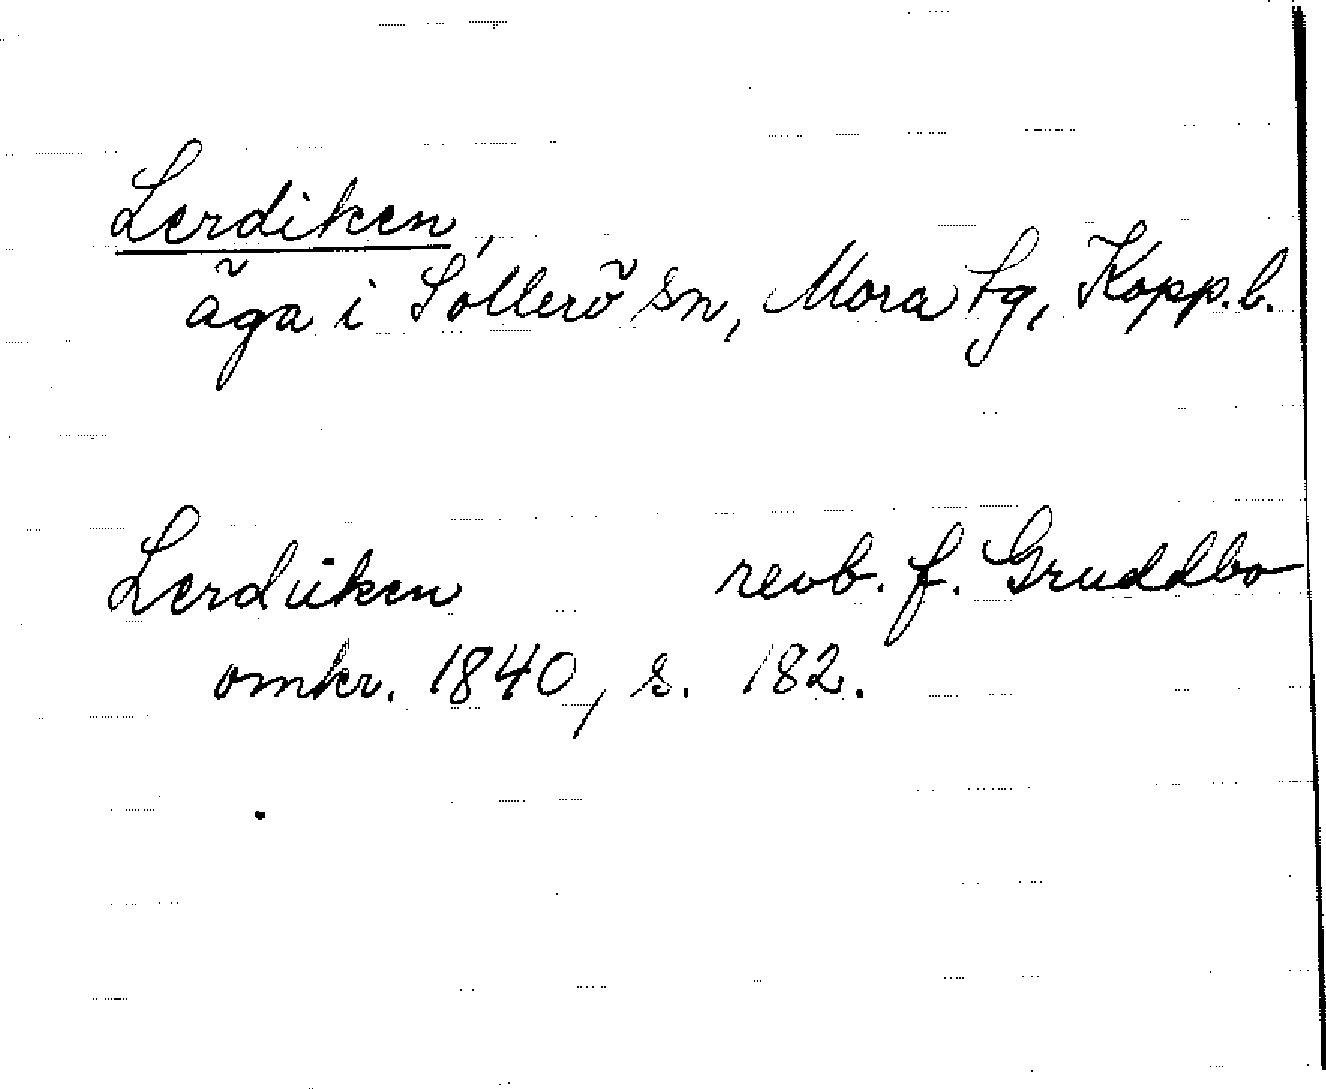 Lerdiken,
äga i Sollerö sn, Mora tg, Kopp.l.
Lerdiiken revb. f. Gruddbo
omkr. 1840, s. 182.